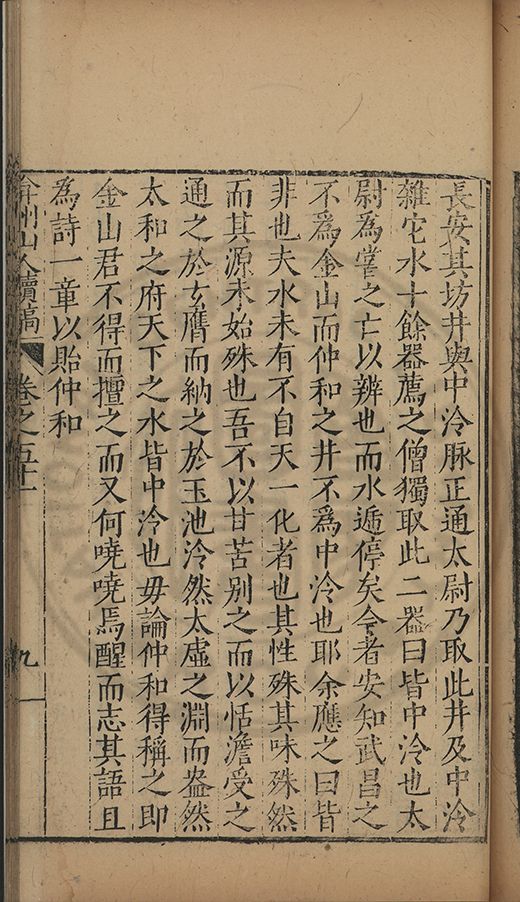 長安某坊井與中泠脉正通太尉乃取此井及中泠
雜它水十餘器薦之僧獨取此二器曰皆中泠也太
尉為嘗之亡以辨也而水遞停矣今者安知武昌之
不為金山而仲和之井不為中泠也耶余應之曰皆
非也夫水未有不自天一化者也其性殊其味殊然
而其源未始殊也吾不以甘苦別之而以恬澹受之
通之於玄膺而納之於玉池泠然太虛之淵而盎然
太和之府天下之水皆中泠也毋論仲和得稱之即
金山君不得而擅之而又何嘵嘵焉醒而志其語且
為詩一章以貽仲和
弇州山人續稿 卷之五十一 九